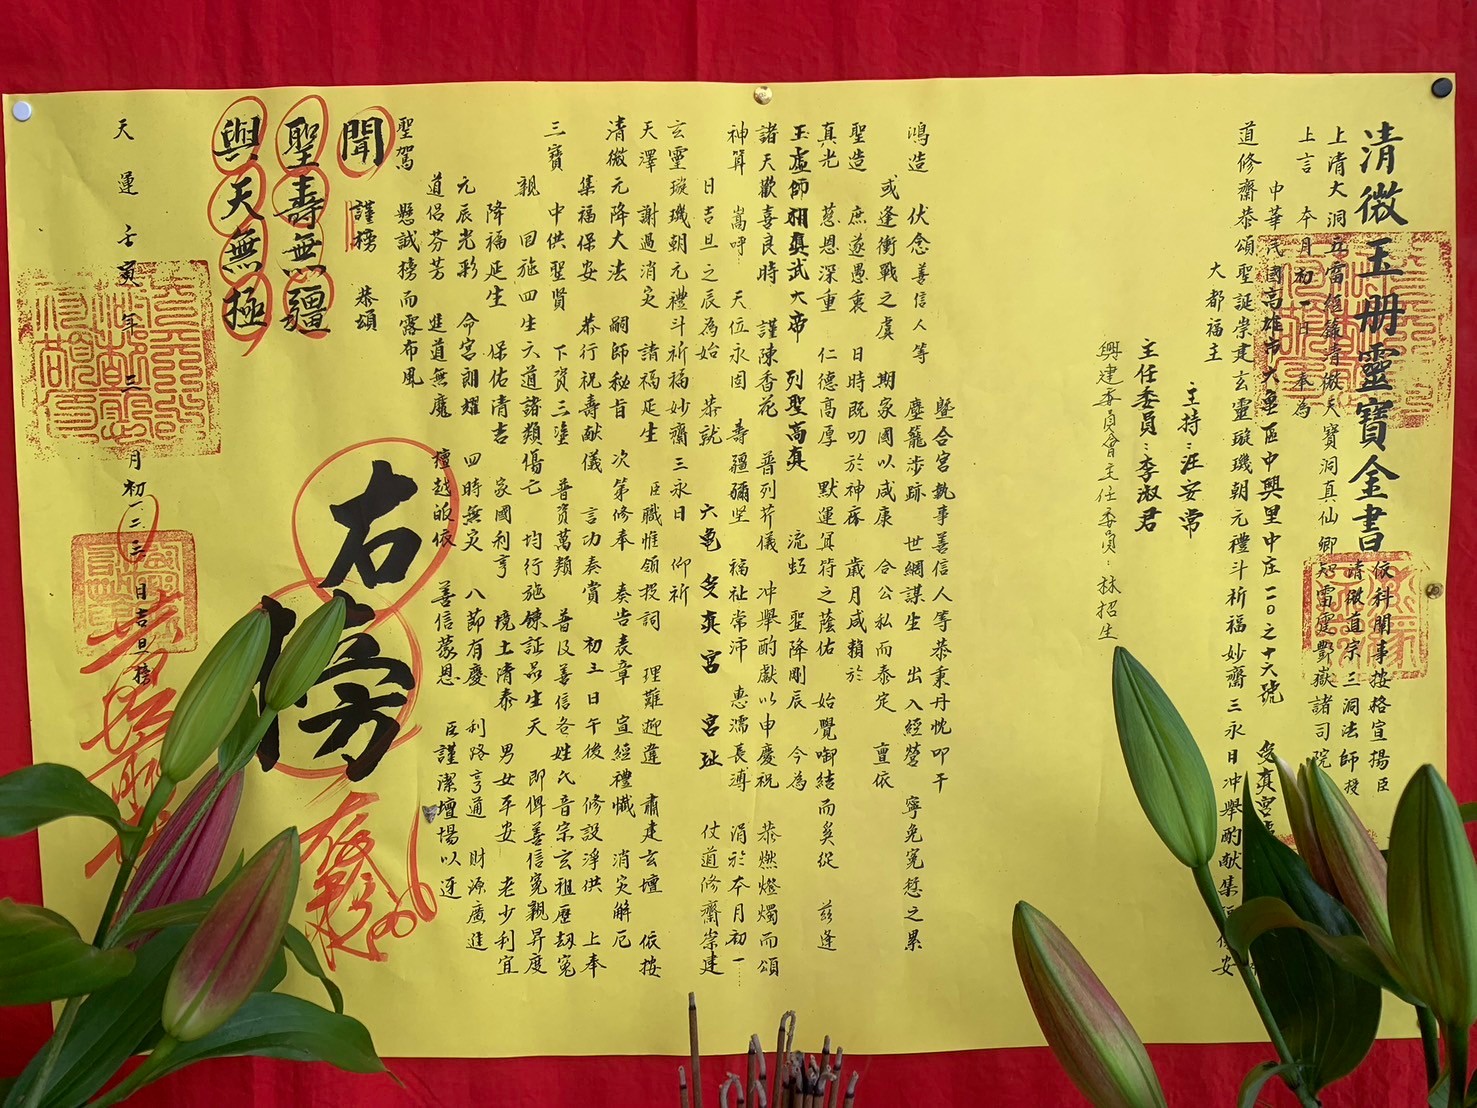 清微玉册靈寶金書
依科闡事按格宣揚臣
上清大洞五雷經籙清微天寶洞真仙卿
清微道宗三洞法師
知雷霆酆嶽諸司院
上言 本月初一日 奉為
中華民國高雄市六龜區中興里中庄一一〇之十六號
道修齋恭頌聖誕崇建玄靈璇璣朝元禮斗祈福妙齋三永日冲舉酌献集福保安
大都福主
主持:汪安常
主任委員:李淑君
興建委員會主任委員:林招生
暨合宮執事善信人等恭秉丹忱叩干
鴻造 伏念善信人等 塵籠涉跡 世網謀生 出入經營 寧免冤愆之累
或逢衝戰之虞 期家國以咸康 合公私而泰定 亶依
聖造 庶遂愚衷 日時既叨於神庥 歲月咸賴於
真光 慈恩深重 仁德高厚 默運冥符之蔭佑 始覺啣結而奚從 兹逢
玉虛師相真武大帝 列聖高真 流虹 聖降剛辰 今為
諸天歡喜良時 謹陳香花 普列芹儀 冲舉酌献以申慶祝 恭燃燈燭而頌
神算 嵩呼 天位永固 壽疆彌堅 福祉常沛 惠濡長溥 涓於本月初一
日吉旦之辰為始 恭就 六龜 多真宮 宮址 仗道修齋崇建
玄靈璇璣朝元禮斗祈福妙齋三永日 仰祈
天澤 謝過消灾 請福延生 臣職惟領投詞 理難迎違 肅建玄壇 依按
清微元降大法 嗣師秘旨 次第修奉 奏告表章 宣經禮懺 消灾解厄
集福保安 恭行祝壽献儀 言功奏賞 初三日午後 修設淨供 上奉
三寶 中供聖賢 下資三塗 普資萬類 普及善信各姓氏音宗玄祖歷劫冤
親 回施四生六道諸類傷亡 均行施鍊証品生天 即俾善信冤親昇度
降福延生 保佑清吉 家國利亨 境土清泰 男女平安 老少利宜
元辰光彩 命宮朗耀 四時無灾 八節有慶 利路亨通 財源廣進
道侶芬芳 進道無魔 檀越皈依 善信蒙恩 臣謹潔壇場以迓
聖駕 懸誠榜而露布風
聞 謹榜 恭頌
聖壽無疆
與天無極
右榜
天運壬寅年三月初一二三日吉旦榜